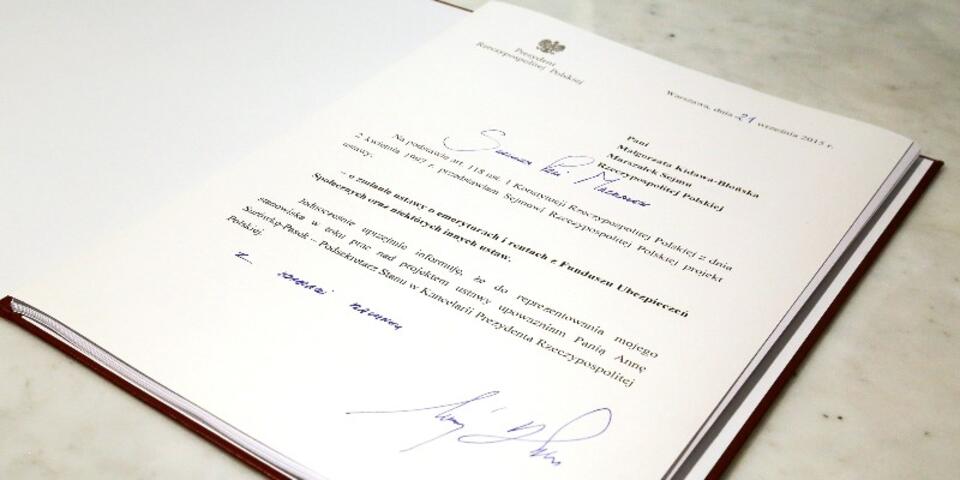 Prezydent
Rzeczypospolitej Polskiej
Warszawa, dnia 21 września 2015 r.
Pani
Małgorzata Kidawa-Błońska
Marszałek Sejmu
Rzeczypospolitej Polskiej
Szanowna Pani Marszałek
Na podstawie art. 118 ust. 1 Konstytucji Rzeczypospolitej Polskiej z dnia
2 kwietnia 1997 r. przedstawiam Sejmowi Rzeczypospolitej Polskiej projekt
ustawy:
– o zmianie ustawy o emeryturach i rentach z Funduszu Ubezpieczeń
Społecznych oraz niektórych innych ustaw.
Jednocześnie uprzejmie informuję, że do reprezentowania mojego
stanowiska w toku prac nad projektem ustawy upoważniam Panią Annę
Surówkę-Pasek – Podsekretarz Stanu w Kancelarii Prezydenta Rzeczypospolitej
Polskiej.